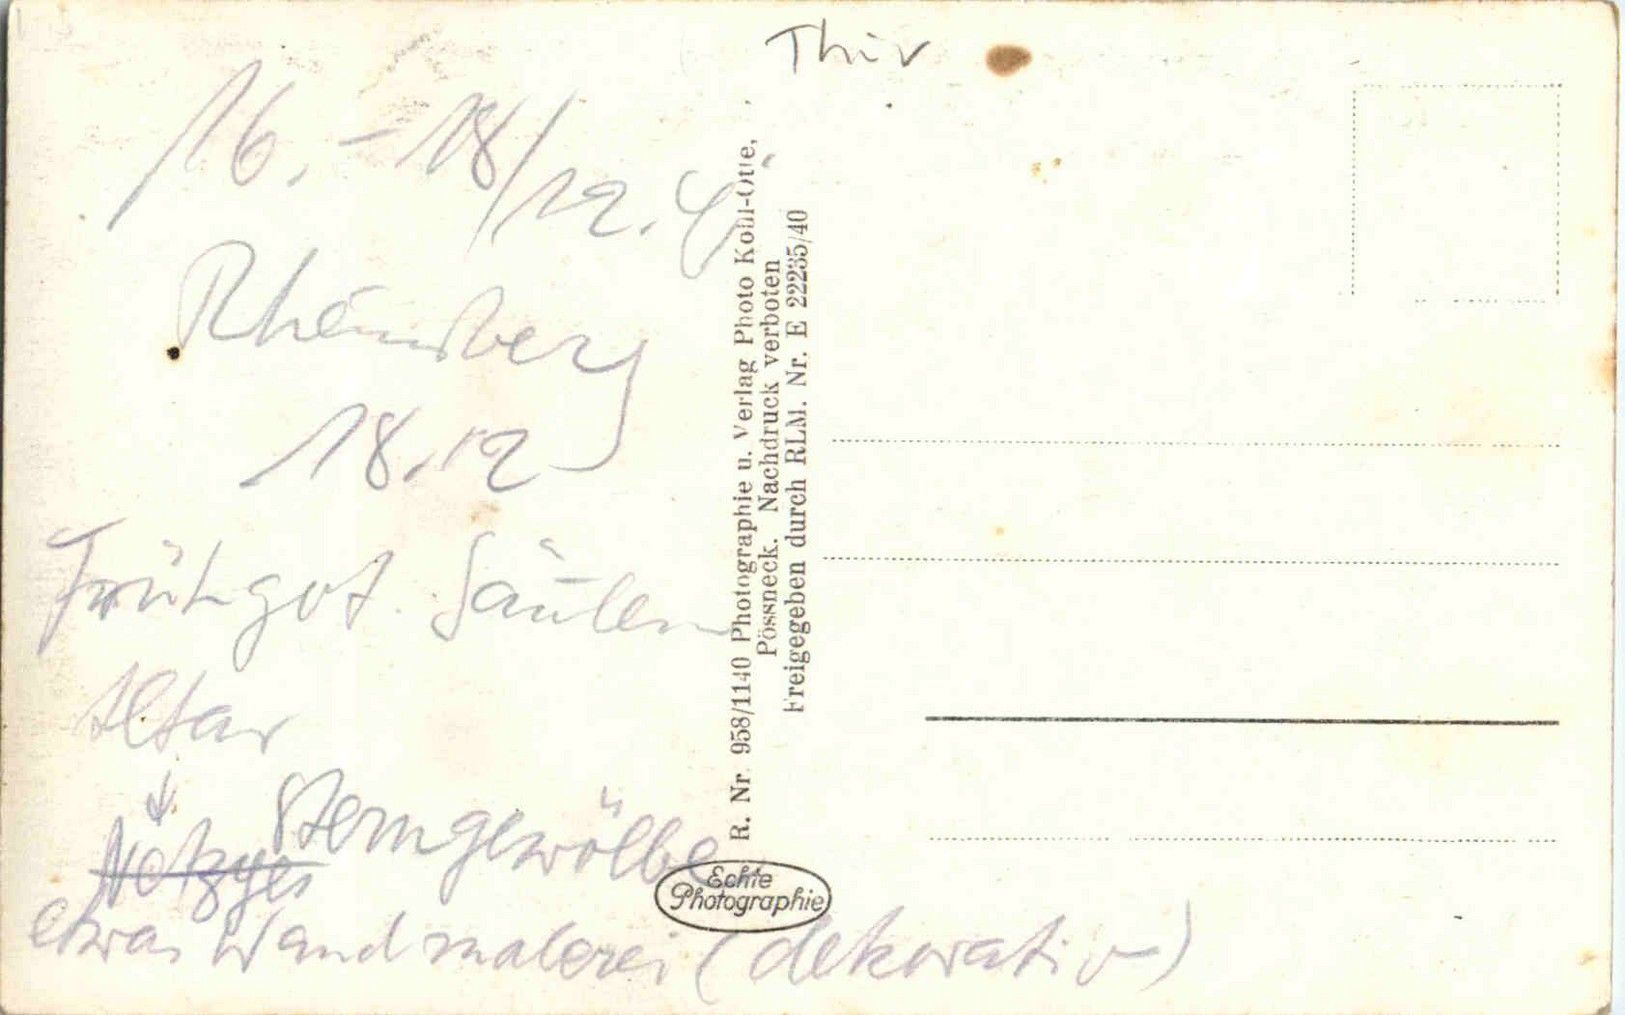 Thür
16.-18/12.
Rheinsberg
18.12
Frühgot. Säulen
Altar
↓ Sterngewölbe
etwas Wandmalerei (dekorativ)
R. Nr. 958/1140 Photographie u. Verlag Photo Kohl-Otte,
Pössneck. Nachdruck verboten
Freigegeben durch RLM. Nr. E 22235/40
Echte
Photographie